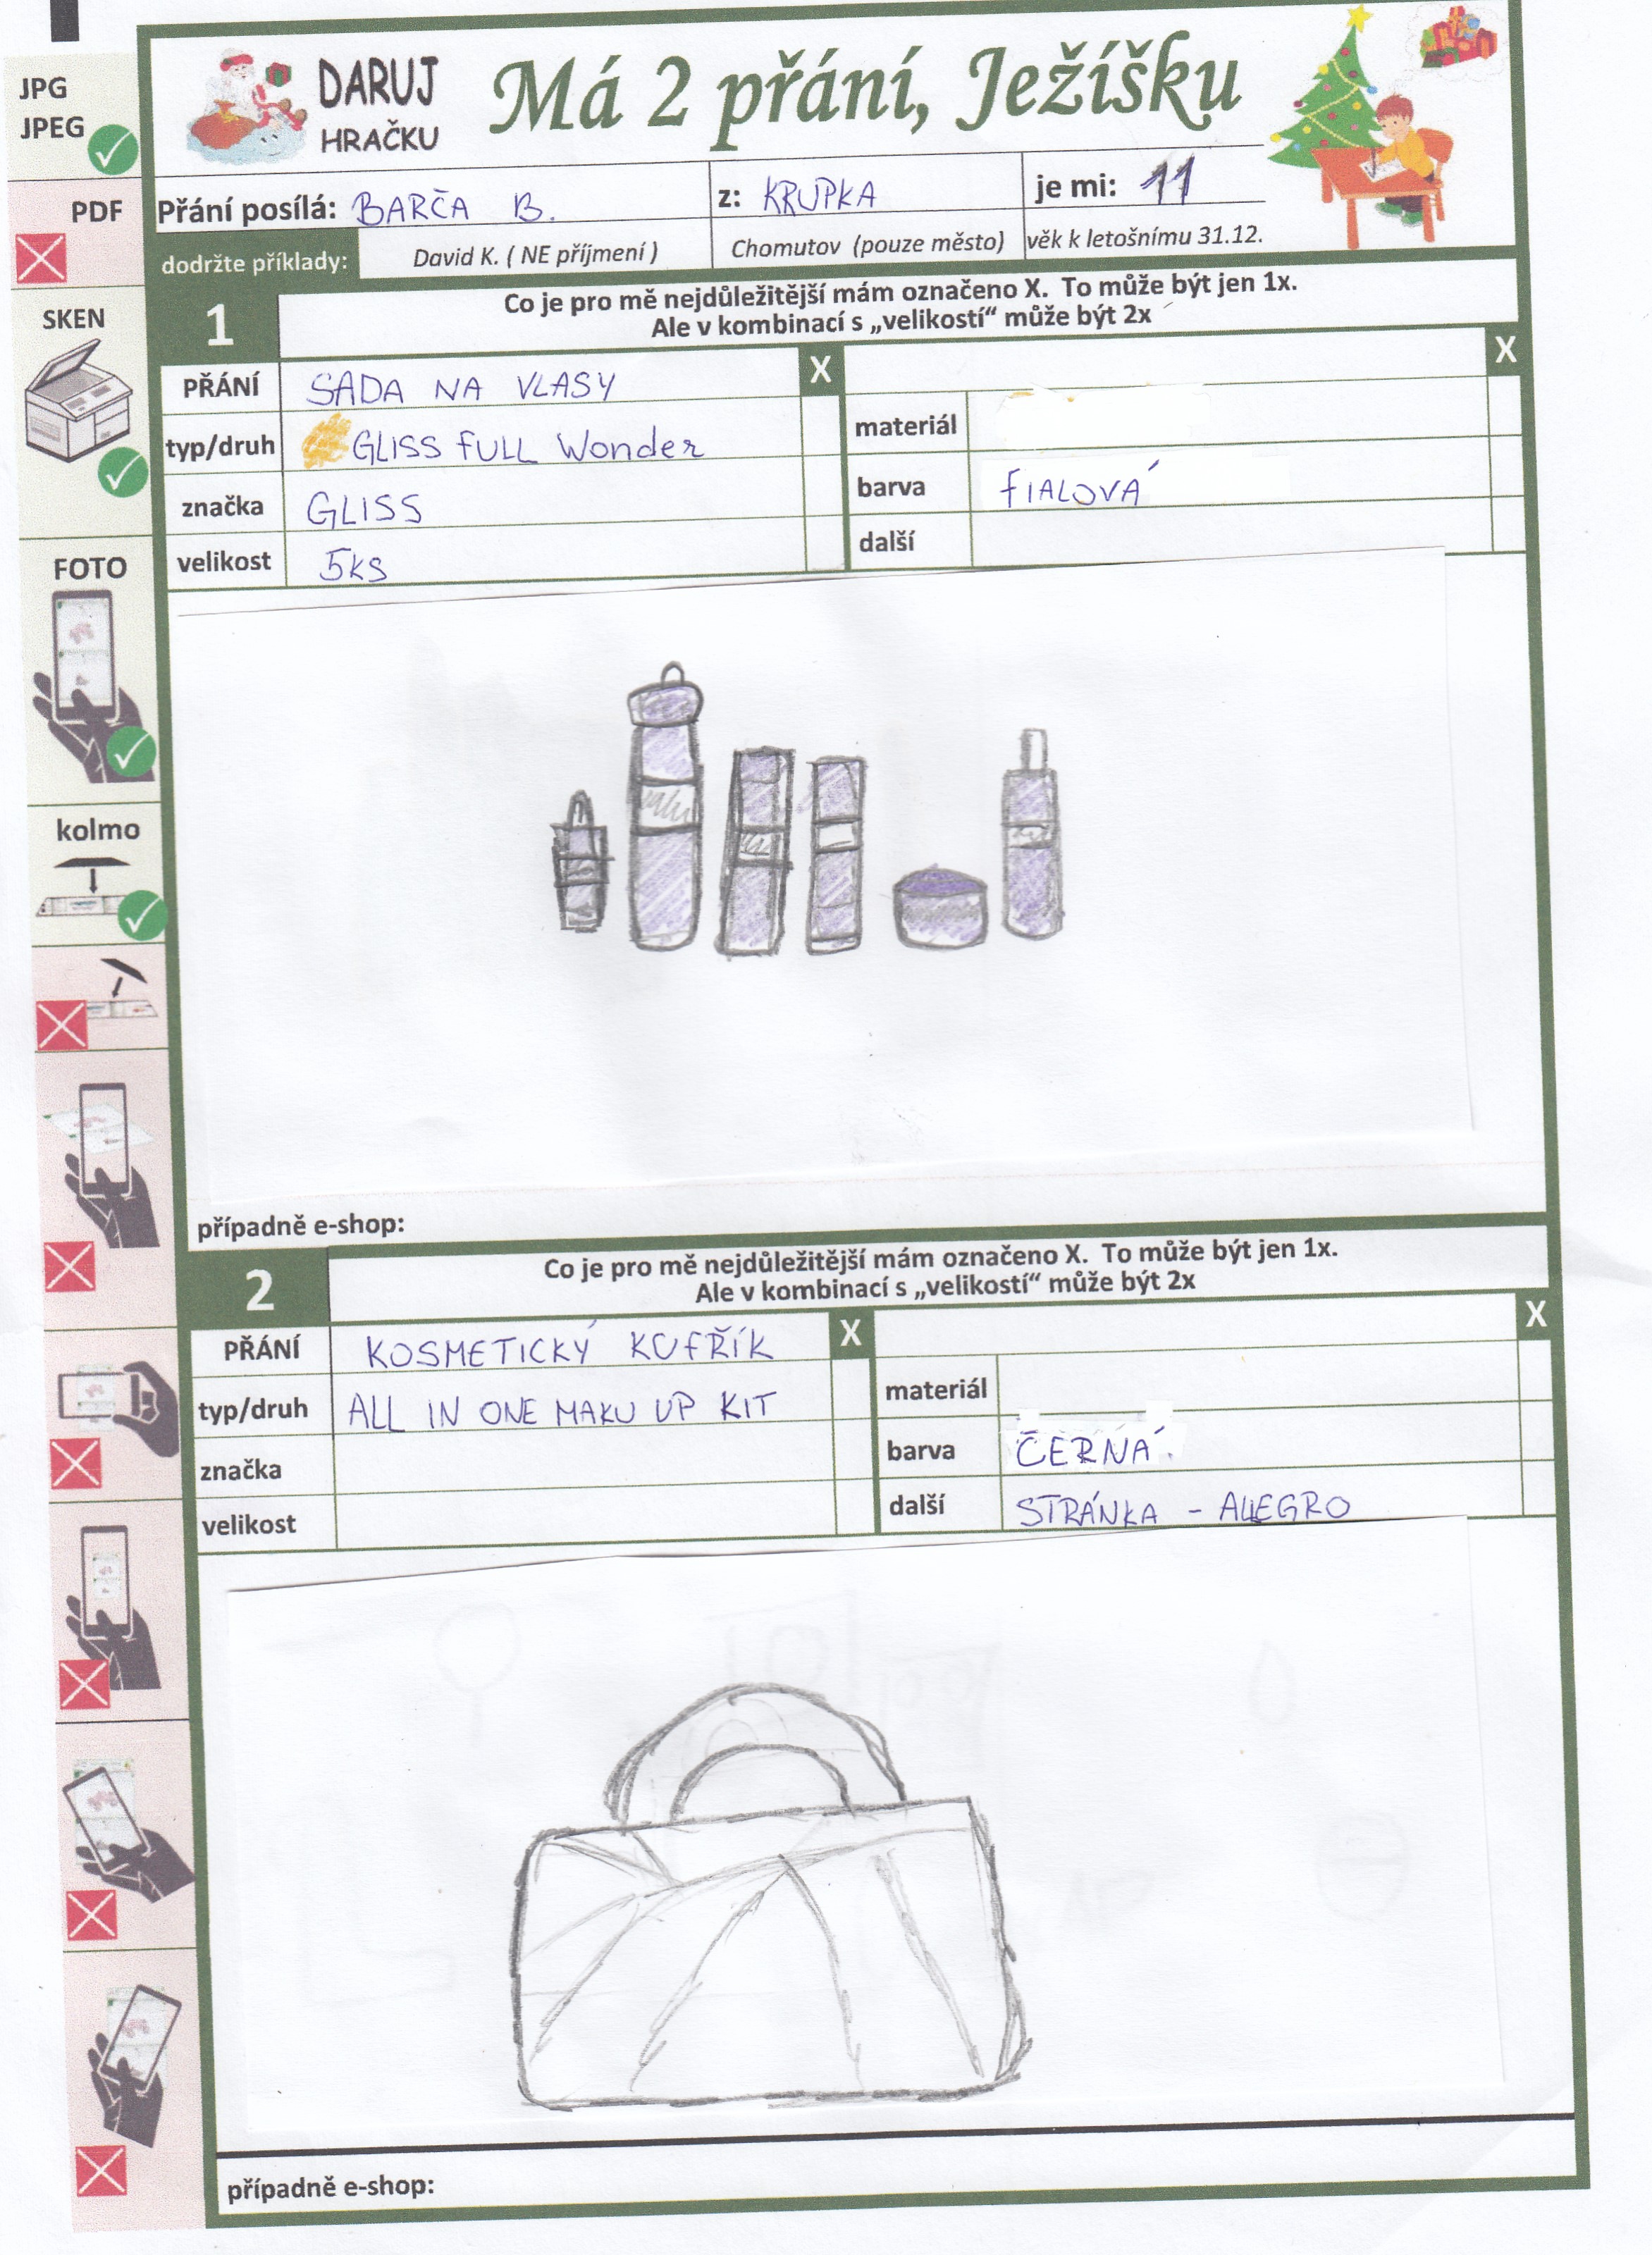 JPG
JPEG
PDF
SKEN
FOTO
kolmo
DARUJ
HRAČKU
Má 2 přání, Ježíšku
Přání posílá: BARČA B. z: KRUPKA je mi: 11
dodržte příklady: David K. ( NE příjmení ) Chomutov (pouze město) věk k letošnímu 31.12.
1
Co je pro mě nejdůležitější mám označeno X. To může být jen 1x.
Ale v kombinací s „velikostí“ může být 2x
X X
PŘÁNÍ SADA NA VLASY
typ/druh GLISS FULL Wonder materiál
značka GLISS barva FIALOVÁ
velikost 5ks další
případně e-shop:
2
Co je pro mě nejdůležitější mám označeno X. To může být jen 1x.
Ale v kombinací s „velikostí“ může být 2x
X X
PŘÁNÍ KOSMETICKÝ KUFŘÍK
typ/druh ALL IN ONE MAKU UP KIT materiál
značka barva ČERNÁ
velikost další STRÁNKA - ALLEGRO
případně e-shop: